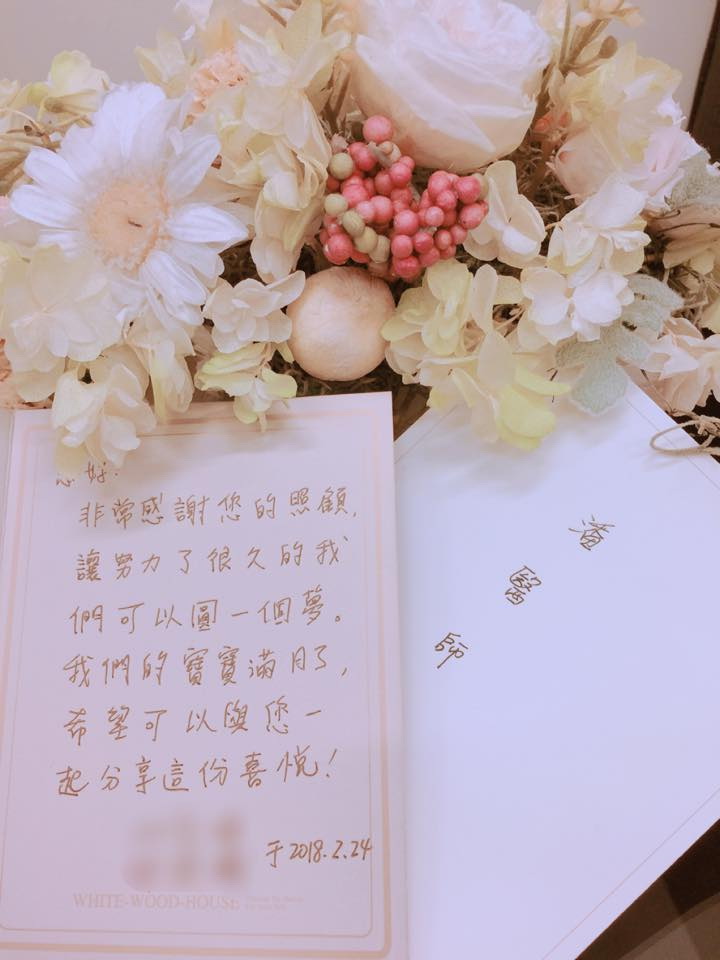 您好:
非常感謝您的照顧,
讓努力了很久的我
們可以圓一個夢。
我們的寶寶滿月了,
希望可以與您一
起分享這份喜悅!
于2018.2.24
WHITE-WOOD-HOUSE
潘醫師